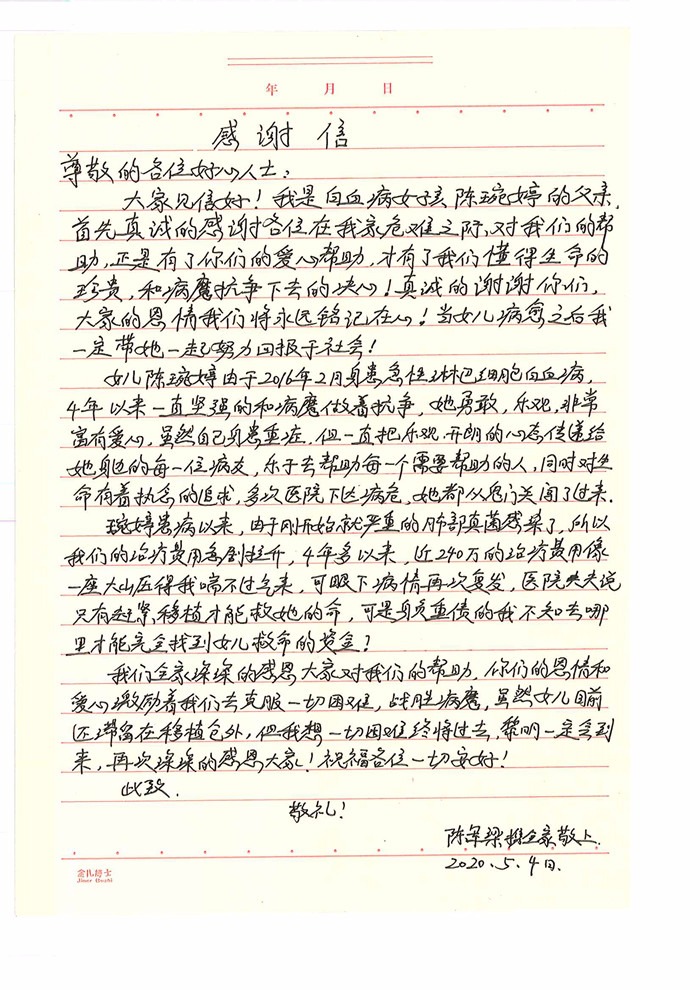 年 月 日
感谢信
尊敬的各位好心人士：
大家见信好！我是白血病女孩陈琬婷的父亲，
首先真诚的感谢各位在我家危难之际，对我们的帮
助，正是有了你们的爱心帮助，才有了我们懂得生命的
珍贵，和病魔抗争下去的决心！真诚的谢谢你们，
大家的恩情我们将永远铭记在心！当女儿病愈之后我
一定带她一起努力回报于社会！
女儿陈琬婷由于2016年2月身患急性淋巴细胞白血病，
4年以来一直坚强的和病魔做着抗争，她勇敢，乐观，非常
富有爱心，虽然自己身患重症，但一直把乐观、开朗的心态传递给
她身边的每一位病友，乐于去帮助每一个需要帮助的人，同时对生
命有着执念的追求，多次医院下达病危，她都从鬼门关闯了过来.
琬婷患病以来，由于刚开始就严重的肺部真菌感染了，所以
我们的治疗费用急剧拉升，4年多以来，近240万的治疗费用像
一座大山压得我喘不过气来，可眼下病情再次复发，医院大夫说
只有赶紧移植才能救她的命，可是身负重债的我不知去哪
里才能完全找到女儿救命的资金？
我们全家深深的感恩大家对我们的帮助，你们的恩情和
爱心激励着我们去克服一切困难，战胜病魔，虽然女儿目前
还滞留在移植仓外，但我想一切困难终将过去，黎明一定会到
来，再次深深的感恩大家！祝福各位一切安好！
此致.
敬礼！
陈军梁携全家敬上.
2020.5.4日.